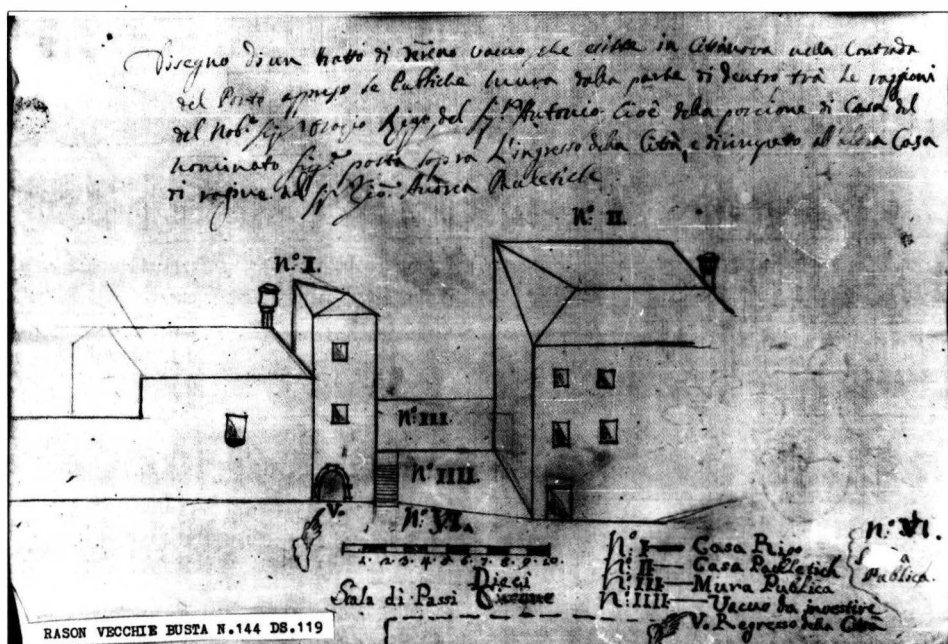 Disegno di un tratto di terreno vacuo che esiste in Cittanova nella Contrada
del Porto apreso le Publiche mura dalla parte di dentro trà le raggioni
del Nob. Sig. Rigo, del Sig. Antonio Cioè della porcione di Casa del
nominato Sig. posta sopra L'ingresso della Città, e dirimpeto all'altra Casa
di ragine del Sig. Gio. Andrea
N.º II.
N.º I.
N.º III.
N.º IIII.
V.
N.º VI.
1. 2. 3. 4. 5. 6. 7. 8. 9. 10.
Scala di Passi Dieci
N.º I Casa Rigo
N.º II Casa
N.º III Mura Publica
N.º IIII Vacuo da investire
V. Regresso della Città
N.º VI.
a
Publica.
RASON VECCHIE BUSTA N.144 DS.119